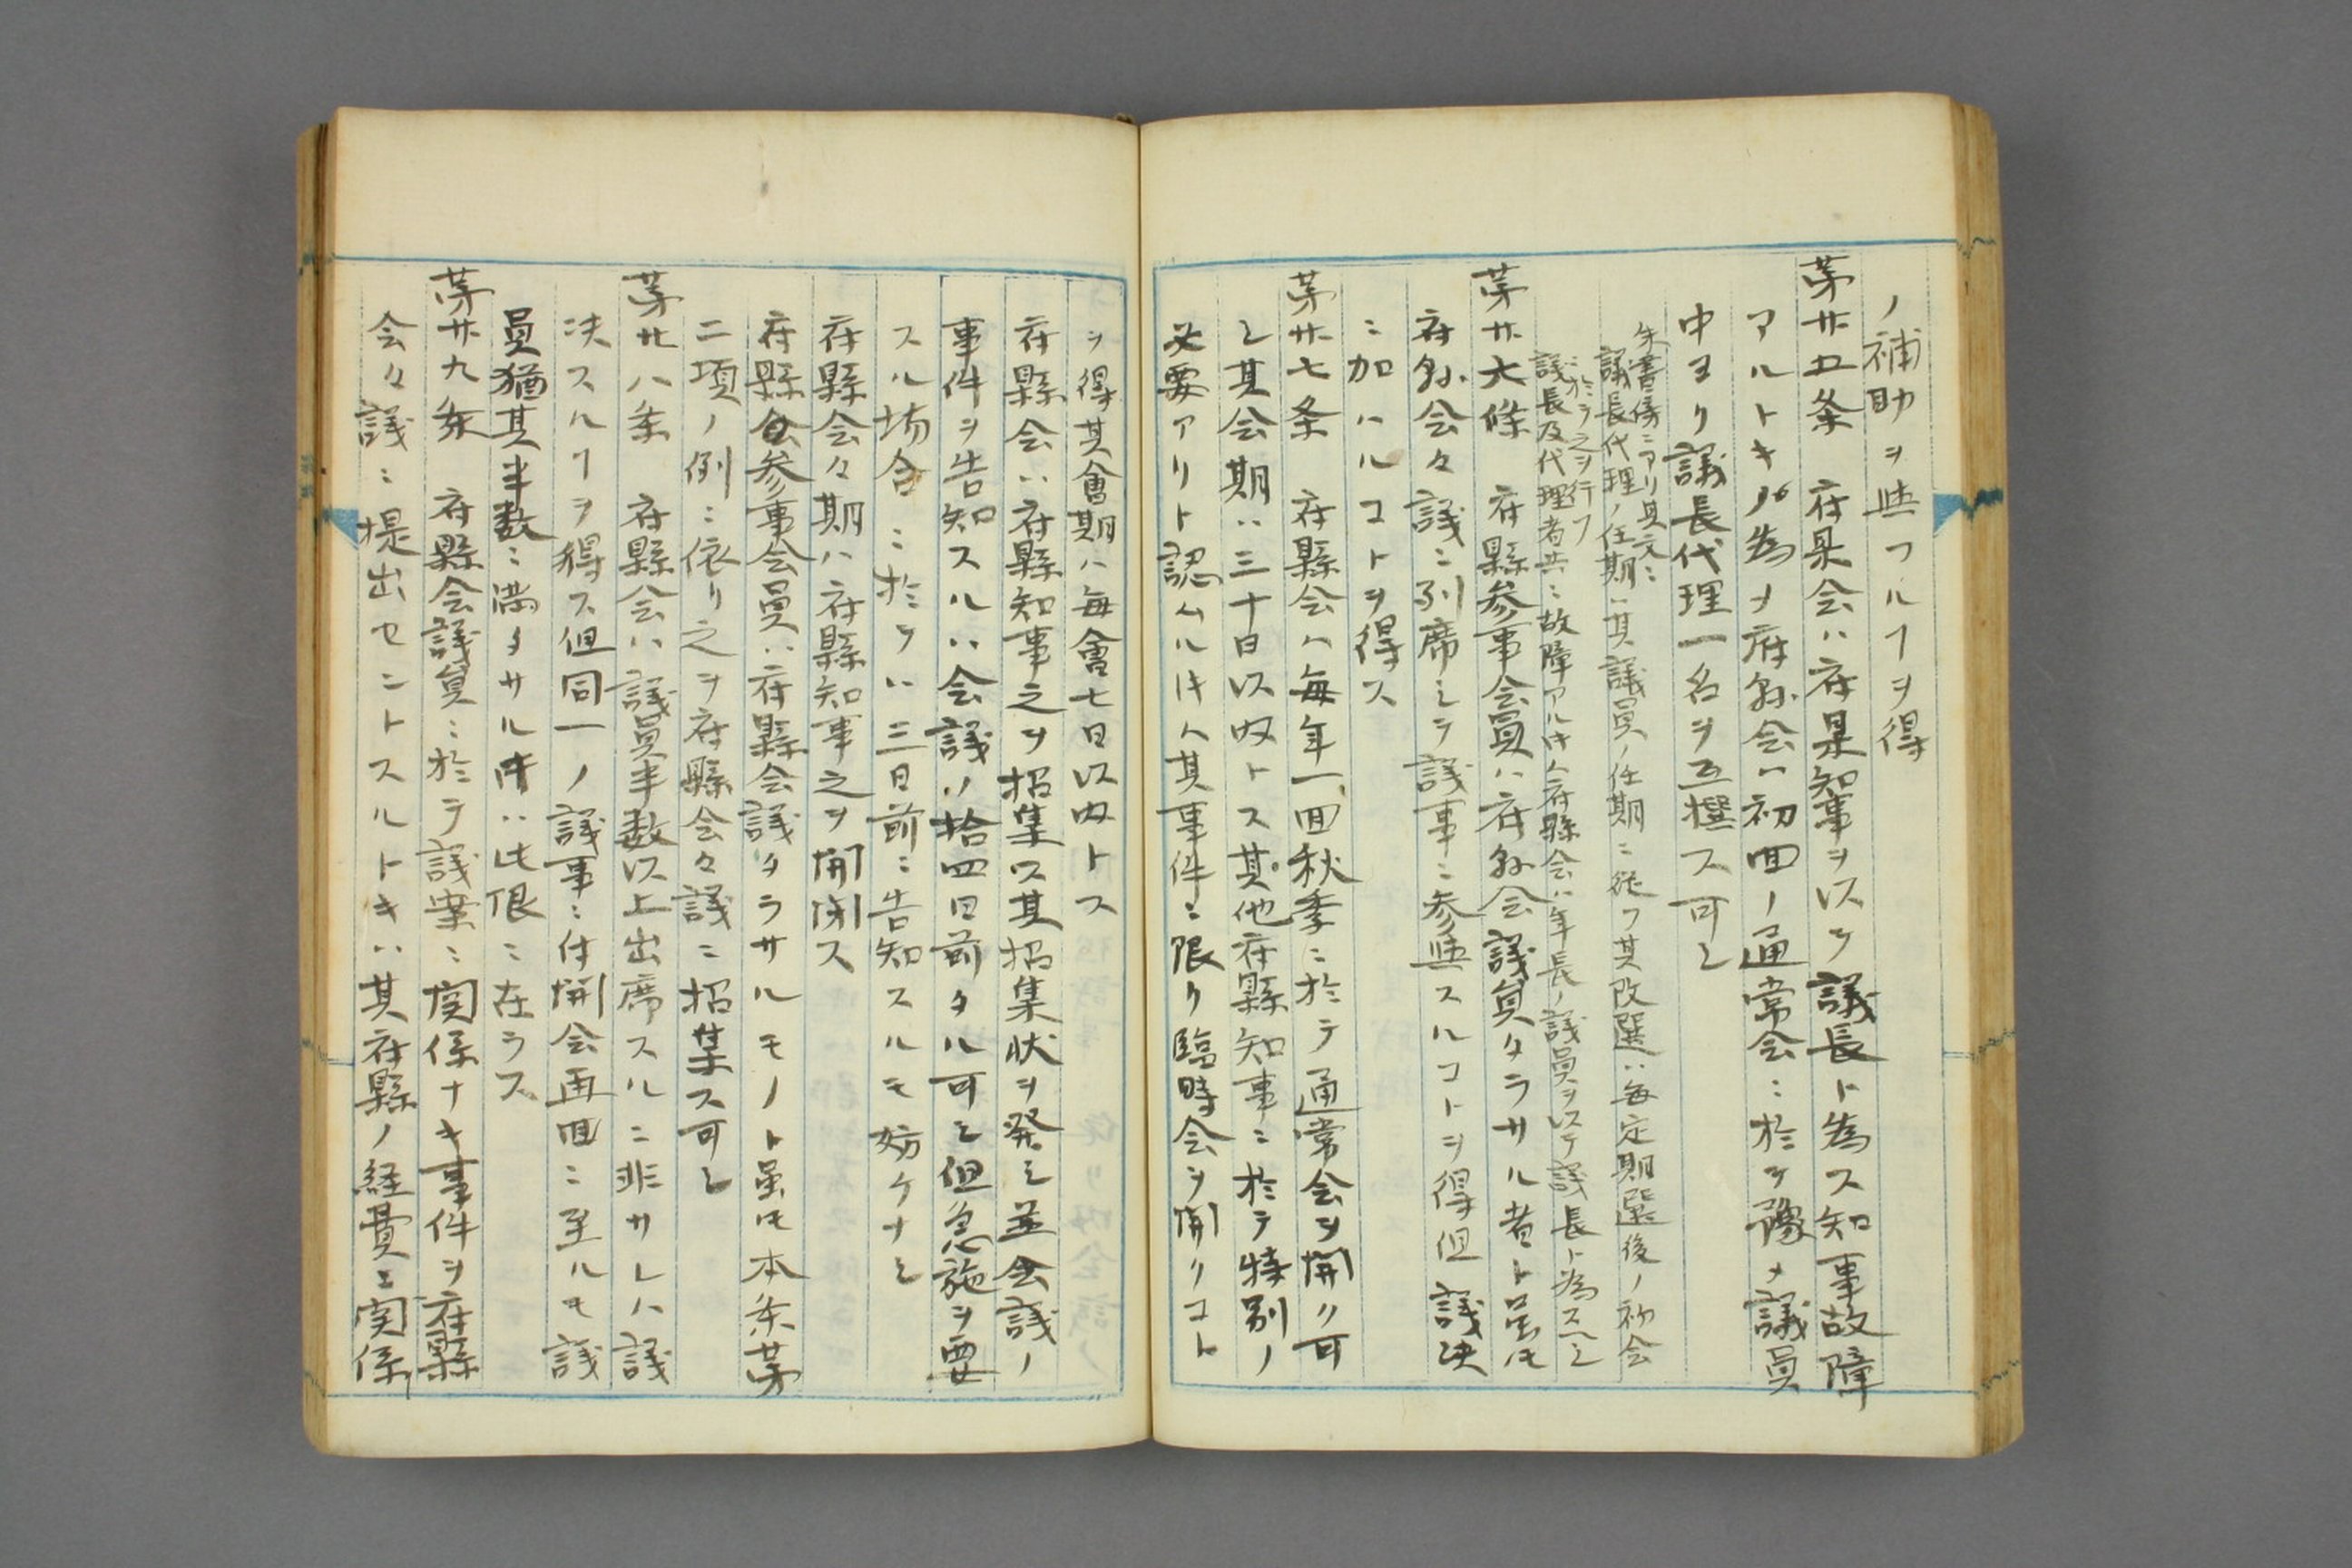 ノ補助ヲ與フルヿヲ得
第廿五条 府県会ハ府県知事ヲ以テ議長ト為ス知事故障
アルトキノ為メ府縣会ハ初回ノ通常会ニ於テ豫メ議員
中ヨリ議長代理一名ヲ互撰ス可シ
朱書傍ニアリ其文ニ
議長代理ノ任期ハ其議員ノ任期ニ従フ其改選ハ毎定期選後ノ初会
ニ於テ之ヲ行フ
議長及代理者共ニ故障アル𪜈ハ府縣会ハ年長ノ議員ヲ以テ議長ト為スヘシ
第廿六條 府縣参事会員ハ府縣会議員タラサル者ト雖𪜈
府縣会々議ニ列席シテ議事ニ参與スルコトヲ得但議決
ニ加ハルコトヲ得ス
第廿七条 府縣会ハ毎年一回秋季ニ於テ通常会ヲ開ク可
シ其会期ハ三十日以内トス其他府縣知事ニ於テ特別ノ
必要アリト認ムル𪜈ハ其事件ニ限リ臨時会ヲ開クコト
ヲ得其會期ハ毎會七日以内トス
府縣会ハ府縣知事之ヲ招集ス其招集状ヲ発シ並会議ノ
事件ヲ告知スルハ会議ノ拾四日前タル可シ但急施ヲ要
スル場合ニ於テハ三日前ニ告知スルモ妨ケナシ
府縣会々期ハ府縣知事之ヲ開閉ス
府縣参事会員ハ府縣会議タラサルモノト雖𪜈本条第
二項ノ例ニ依リ之ヲ府縣会々議ニ招集ス可シ
第廿八条 府縣会ハ議員半数以上出席スルニ非サレハ議
决スルヿヲ得ス但同一ノ議事ニ付開会再回ニ至ルモ議
員猶其半数ニ満タサル時ハ此限ニ在ラス
第廿九条 府縣会議員ニ於テ議案ニ関係ナキ事件ヲ府縣
会々議ニ提出セントスルトキハ其府縣ノ経費ニ関係